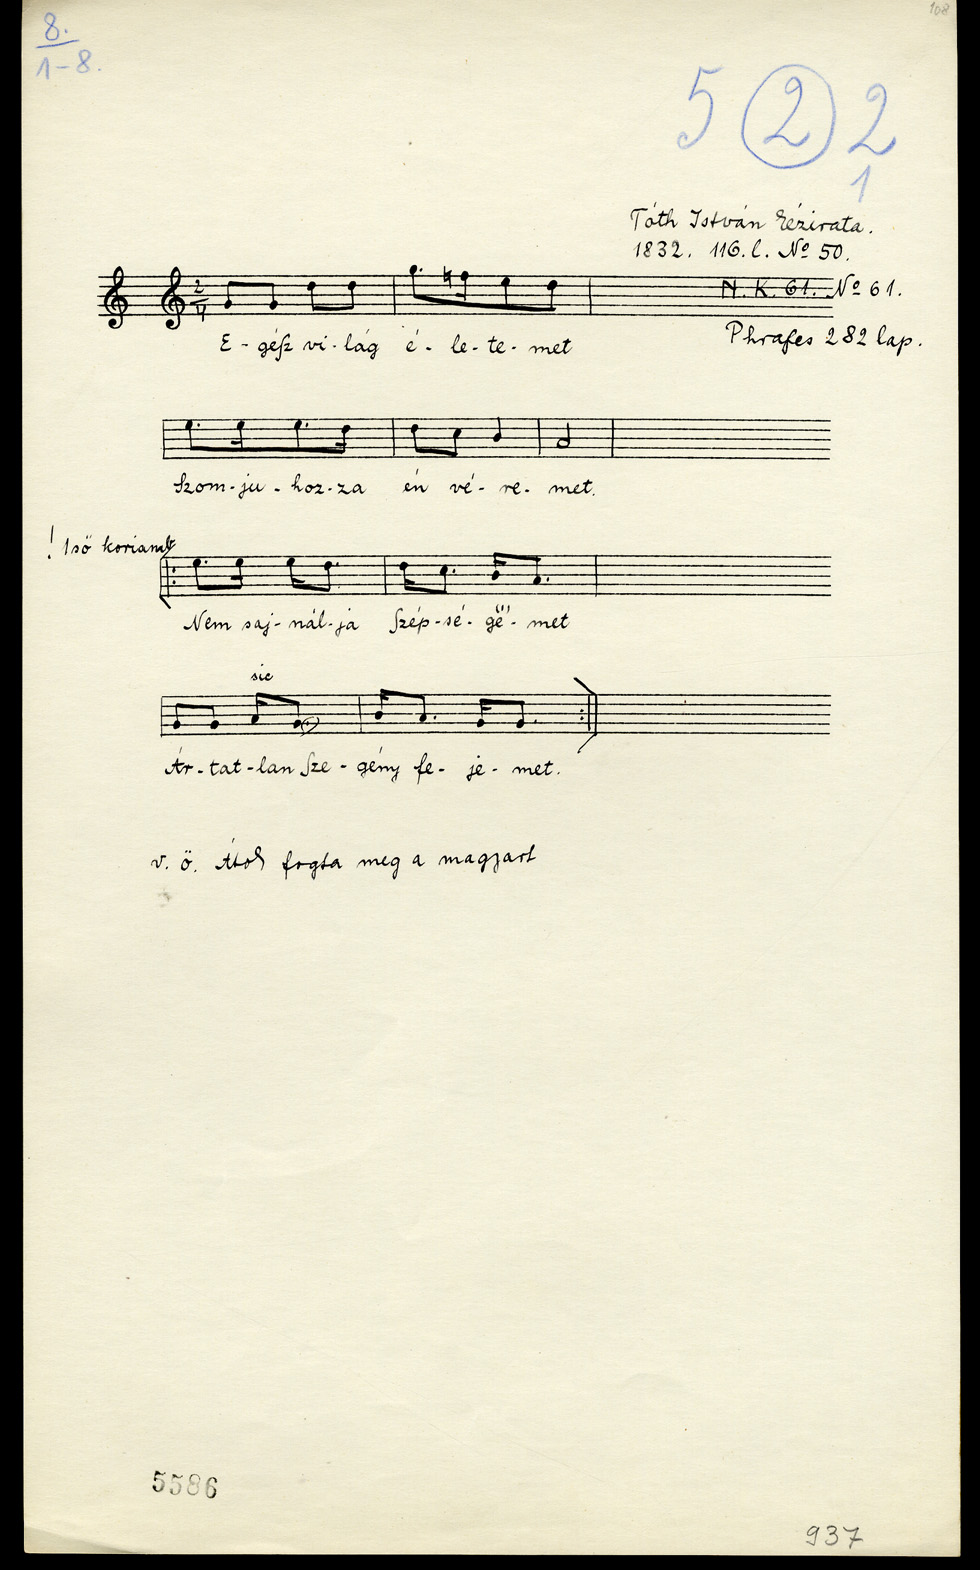 108
8.
1-8.
5 2 2
1
Tóth István kézirata.
1832. 116. l. No 50.
N. K. 61. No 61.
Phrases 282 lap.
2
4
E - géſz vi - lág é - le - te - met
Szom - ju - hoz - za én vé - re - met.
! 1ső
Nem saj - nál - ja Szép - sé - gë - met
sic
Ár - tat - lan Sze - gény fe - je - met.
v. ö. Átok fogta meg a magyart
5586
937